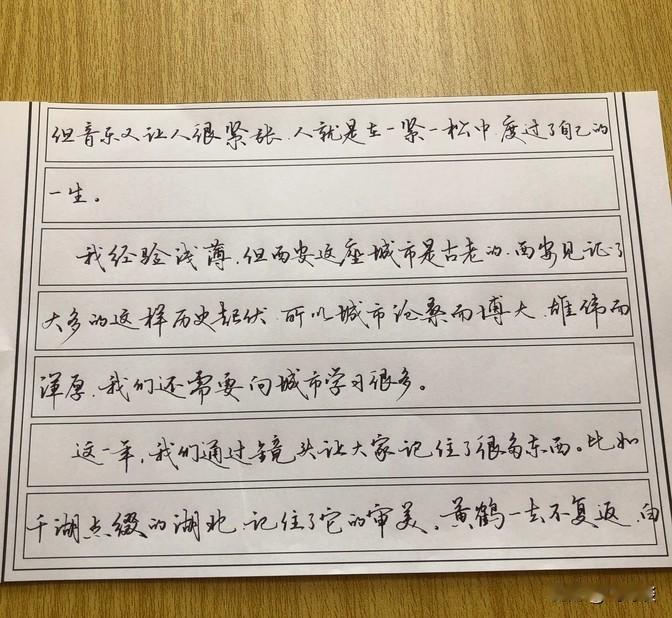 但音乐又让人很紧张，人就是在一紧一松中，度过了自己的
一生。
我经验浅薄，但西安这座城市是古老的，西安见证了
太多的这样历史起伏，所以城市沧桑而博大，雄伟而
浑厚，我们还需要向城市学习很多。
这一年，我们通过镜头让大家记住了很多东西。比如
千湖点缀的湖北，记住了它的审美。黄鹤一去不复返，白